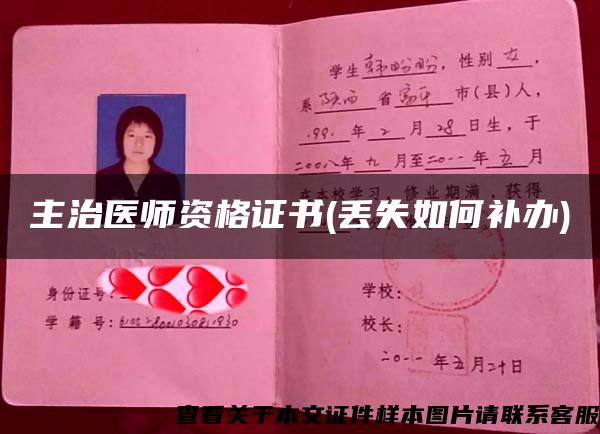 学生韩盼盼，性别女，
系陕西省富平市(县)人，
199 年2月28日生，于
二00八年九月至二0一一年五月
在本校学习，修业期满，获得
主治医师资格证书(丢失如何补办)
身份证号：
学籍号：
学校：
校长：
二0一一年五月二十日
查看关于本文证件样本图片请联系客服